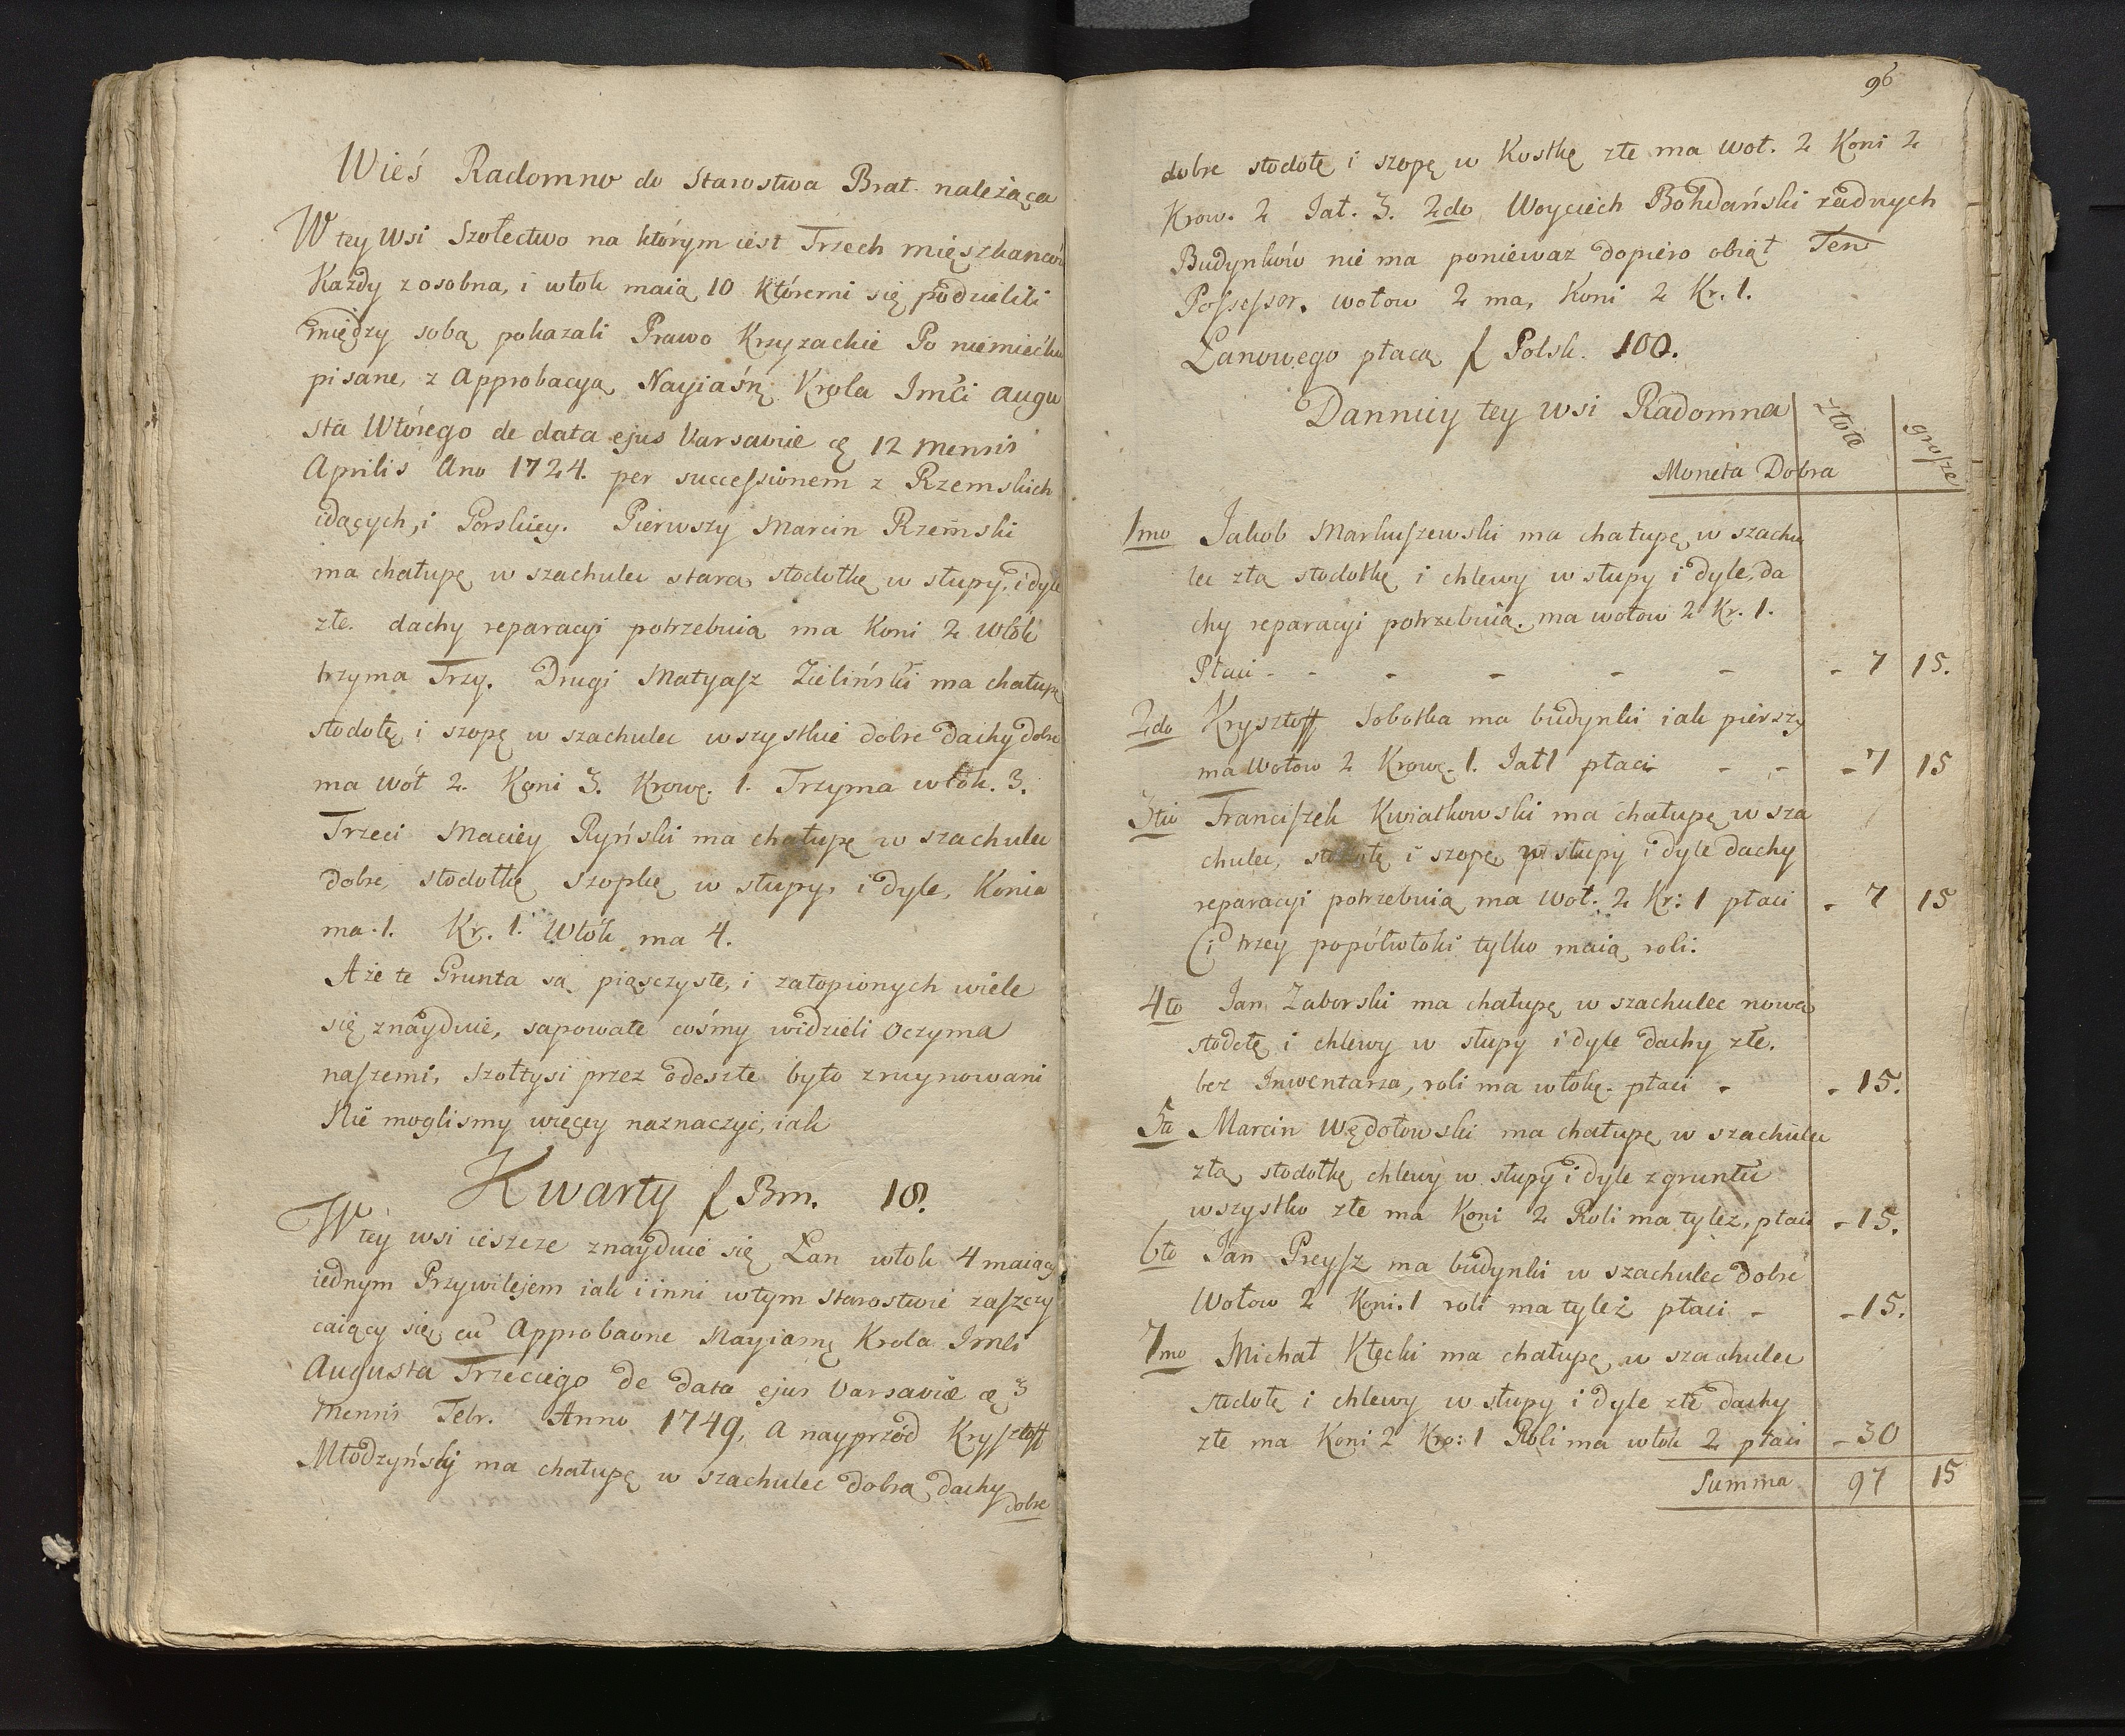 Wieś Radomno do Starostwa Brat. należąca
W tey Wsi Szołectwo na którym iest Trzech mięszkanców
Każdy z osobna, i włok maią 10 któremi się podzielili
między sobą pokazali Prawo Krzyzackie Po niemiecku
pisane, z Approbacyą Nayiaśn. Krola Jmci Augu
sta Wtórego de data ejus Varsaviæ 12 Mensis
Aprilis Ano 1724. per successionem z Rzemskich
idących, i Gorskiey. Pierwszy Marcin Rzemski
ma chałupę w szachulec starą stodołkę w słupy, i dyle
złe. dachy reparacyi potrzebuią ma Koni 2 Włók
trzyma Trzy. Drugi Matyasz Zieliński ma chałupę
stodołę i szopę w szachulec wszystkie dobre dachy dobre
ma wół 2. Koni 3. Krowę. 1. Trzyma włok. 3.
Trzeci Maciey Ryński ma chałupę w szachulec
dobre, stodołkę szopkę w słupy, i dyle, Konia
ma 1. Kr. 1. Włók ma 4.
A że te Grunta są piasczyste, i zatopionych wiele
się znayduie, sapowate cośmy widzieli Oczyma
naszemi, Szołtysi przez odeszłe było zruynowani
Nie moglismy więcey naznaczyć, iak
Kwarty f Bm. 18.
W tey wsi ieszcze znayduie się Łan włok 4 maiący
iednym Przywilejem iak i inni w tym Starostwie zaszczy
caiący się cu Approbaone Nayiasnę Krola Jmci
Augusta Trzeciego de data ejus Varsaviæ 3
Mensis Febr. Anno 1749, A nayprzód Krysztoff
Młodzyński ma chałupę w szachulec dobrą dachy
dobre
96
dobre stodołę i szopę w Kostkę złe ma Woł. 2 Koni 2
Krow. 2 Jał. 3. 2do Woyciech Bohdański żadnych
Budynków nie ma ponieważ dopiero obiął Ten
Possessor. wołow 2 ma, Koni 2 Kr. 1.
Łanowego płacą f Polsk. 100.
Dannicy tey wsi Radomna złote grosze
Moneta Dobra
1mo Jakob Markuszewski ma chałupę w szachu
lec złą stodołkę i chlewy w słupy i dyle, da
chy reparacyi potrzebuią. ma wołow 2 Kr. 1.
Płaci - - - - - - 7 15.
2do Krysztoff Sobotka ma budynki iak pierszy
ma Wołow 2 Krowę. 1. Jał 1 płaci - - - 7 15
3tio Franciszek Kwiatkowski ma chałupę w sza
chulec, stodołę i szopę w słupy i dyle dachy
reparacyi potrzebuią ma Woł. 2 Kr: 1 płaci - 7 15
Ci trzey popółwłoki tylko maią roli:
4to Jan Zaborski ma chałupę w szachulec nową
stodołę i chlewy w słupy i dyle dachy złe.
bez Inwentarza, roli ma włokę. płaci - - 15.
5to Marcin Wędołowski ma chałupę w szachulec
złą stodołkę chlewy w słupy i dyle z gruntu
wszystko złe ma Koni 2 Roli ma tyleż, płaci - 15.
6to Jan Preysz ma budynki w szachulec dobre
Wołow 2 Koni. 1 roli ma tyleż płaci - - 15.
7mo Michał Kłęcki ma chałupę w szachulec
stodołę i chlewy w słupy i dyle złe dachy
złe ma Koni 2 Kro: 1 Roli ma włok 2 płaci - 30
Summa 97 15